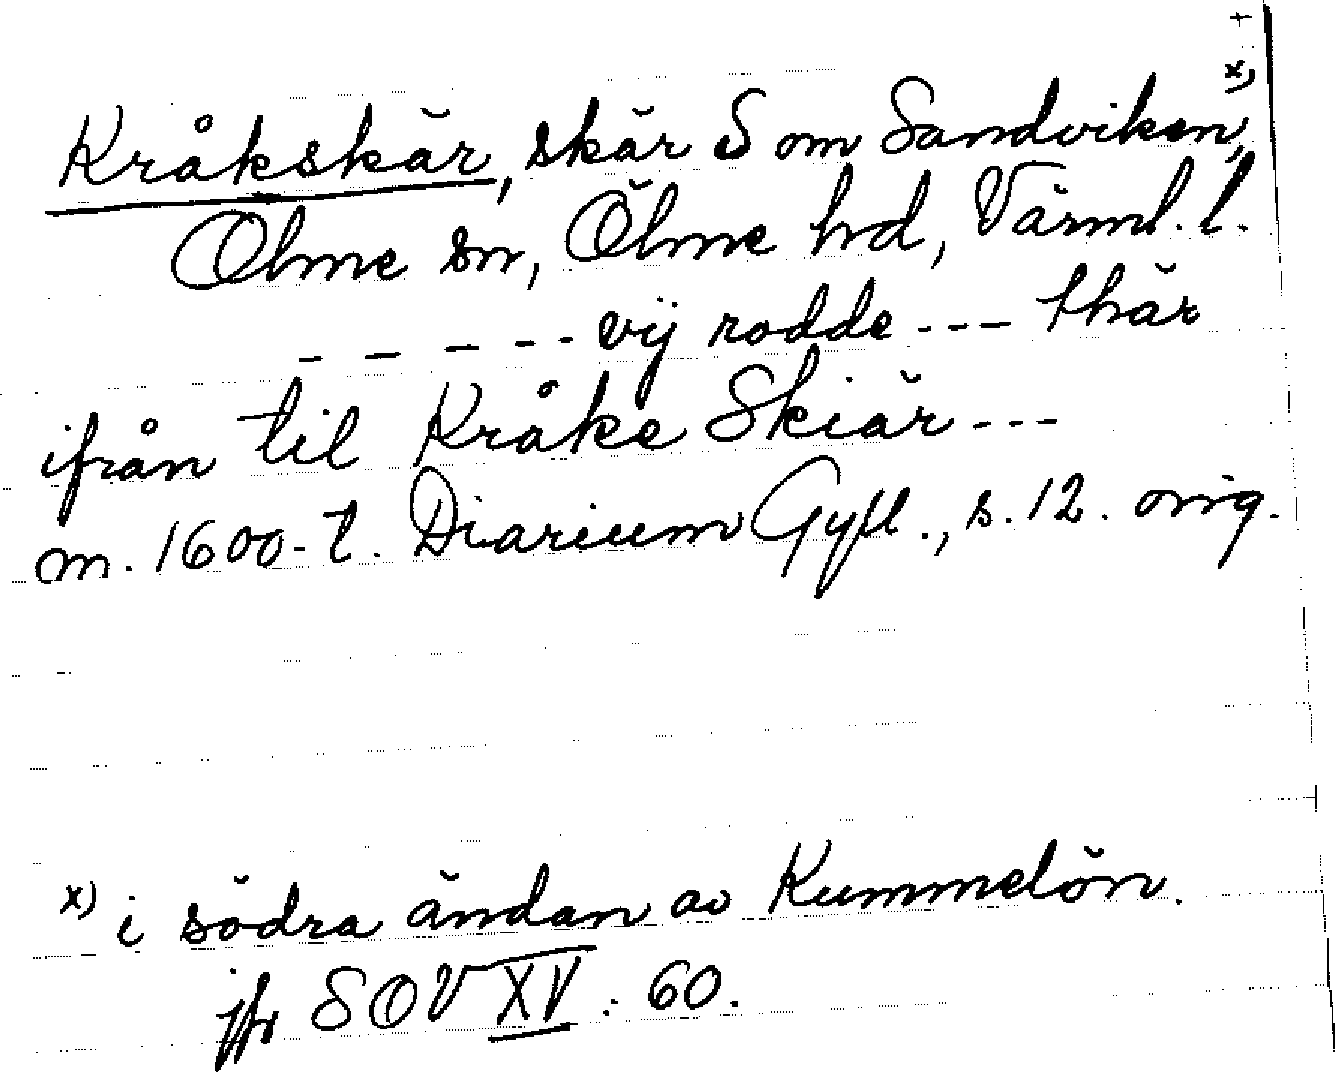 Kråkskär, skär S om Sandviken, x)
Ölme sn, Ölme hd, Värml. l.
- - - - - - vÿ rodde - - - thär
ifrån til Kråke Skiär - - -
m. 1600-t. Diarium Gyll., s. 12. orig.
x) i södra ändan av Kummelön.
jfr SOV XV : 60.